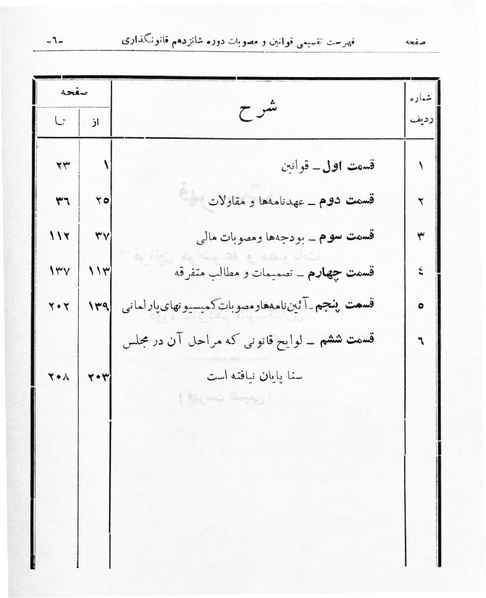 صفحه فهرست تقسیمی قوانین و مصوبات دوره شانزدهم قانونگذاری -٦-
شماره ردیف شرح صفحه
از تا
۱ قسمت اول ــ قوانین ۱ ۲۳
۲ قسمت دوم ــ عهدنامه‌ها و مقاولات ۲۵ ۳۶
۳ قسمت سوم ــ بودجه‌ها و مصوبات مالی ۳۷ ۱۱۲
٤ قسمت چهارم ــ تصمیمات و مطالب متفرقه ۱۱۳ ۱۳۷
۵ قسمت پنجم ــ آئین‌نامه‌ها و مصوبات کمیسیونهای پارلمانی ۱۳۹ ۲۰۲
٦ قسمت ششم ــ لوایح قانونی که مراحل آن در مجلس
سنا پایان نیافته است ۲۰۳ ۲۰۸